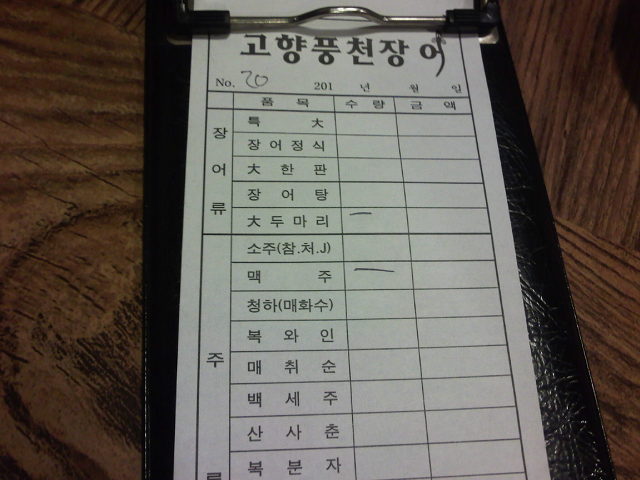 고향풍천장어
No. 20 201 년 월 일
품 목 수 량 금 액
장어류
특 大
장어정식
大 한 판
장 어 탕
大 두 마 리 一
주류
소주(참.처.J)
맥 주 一
청하(매화수)
복 와 인
매 취 순
백 세 주
산 사 춘
복 분 자